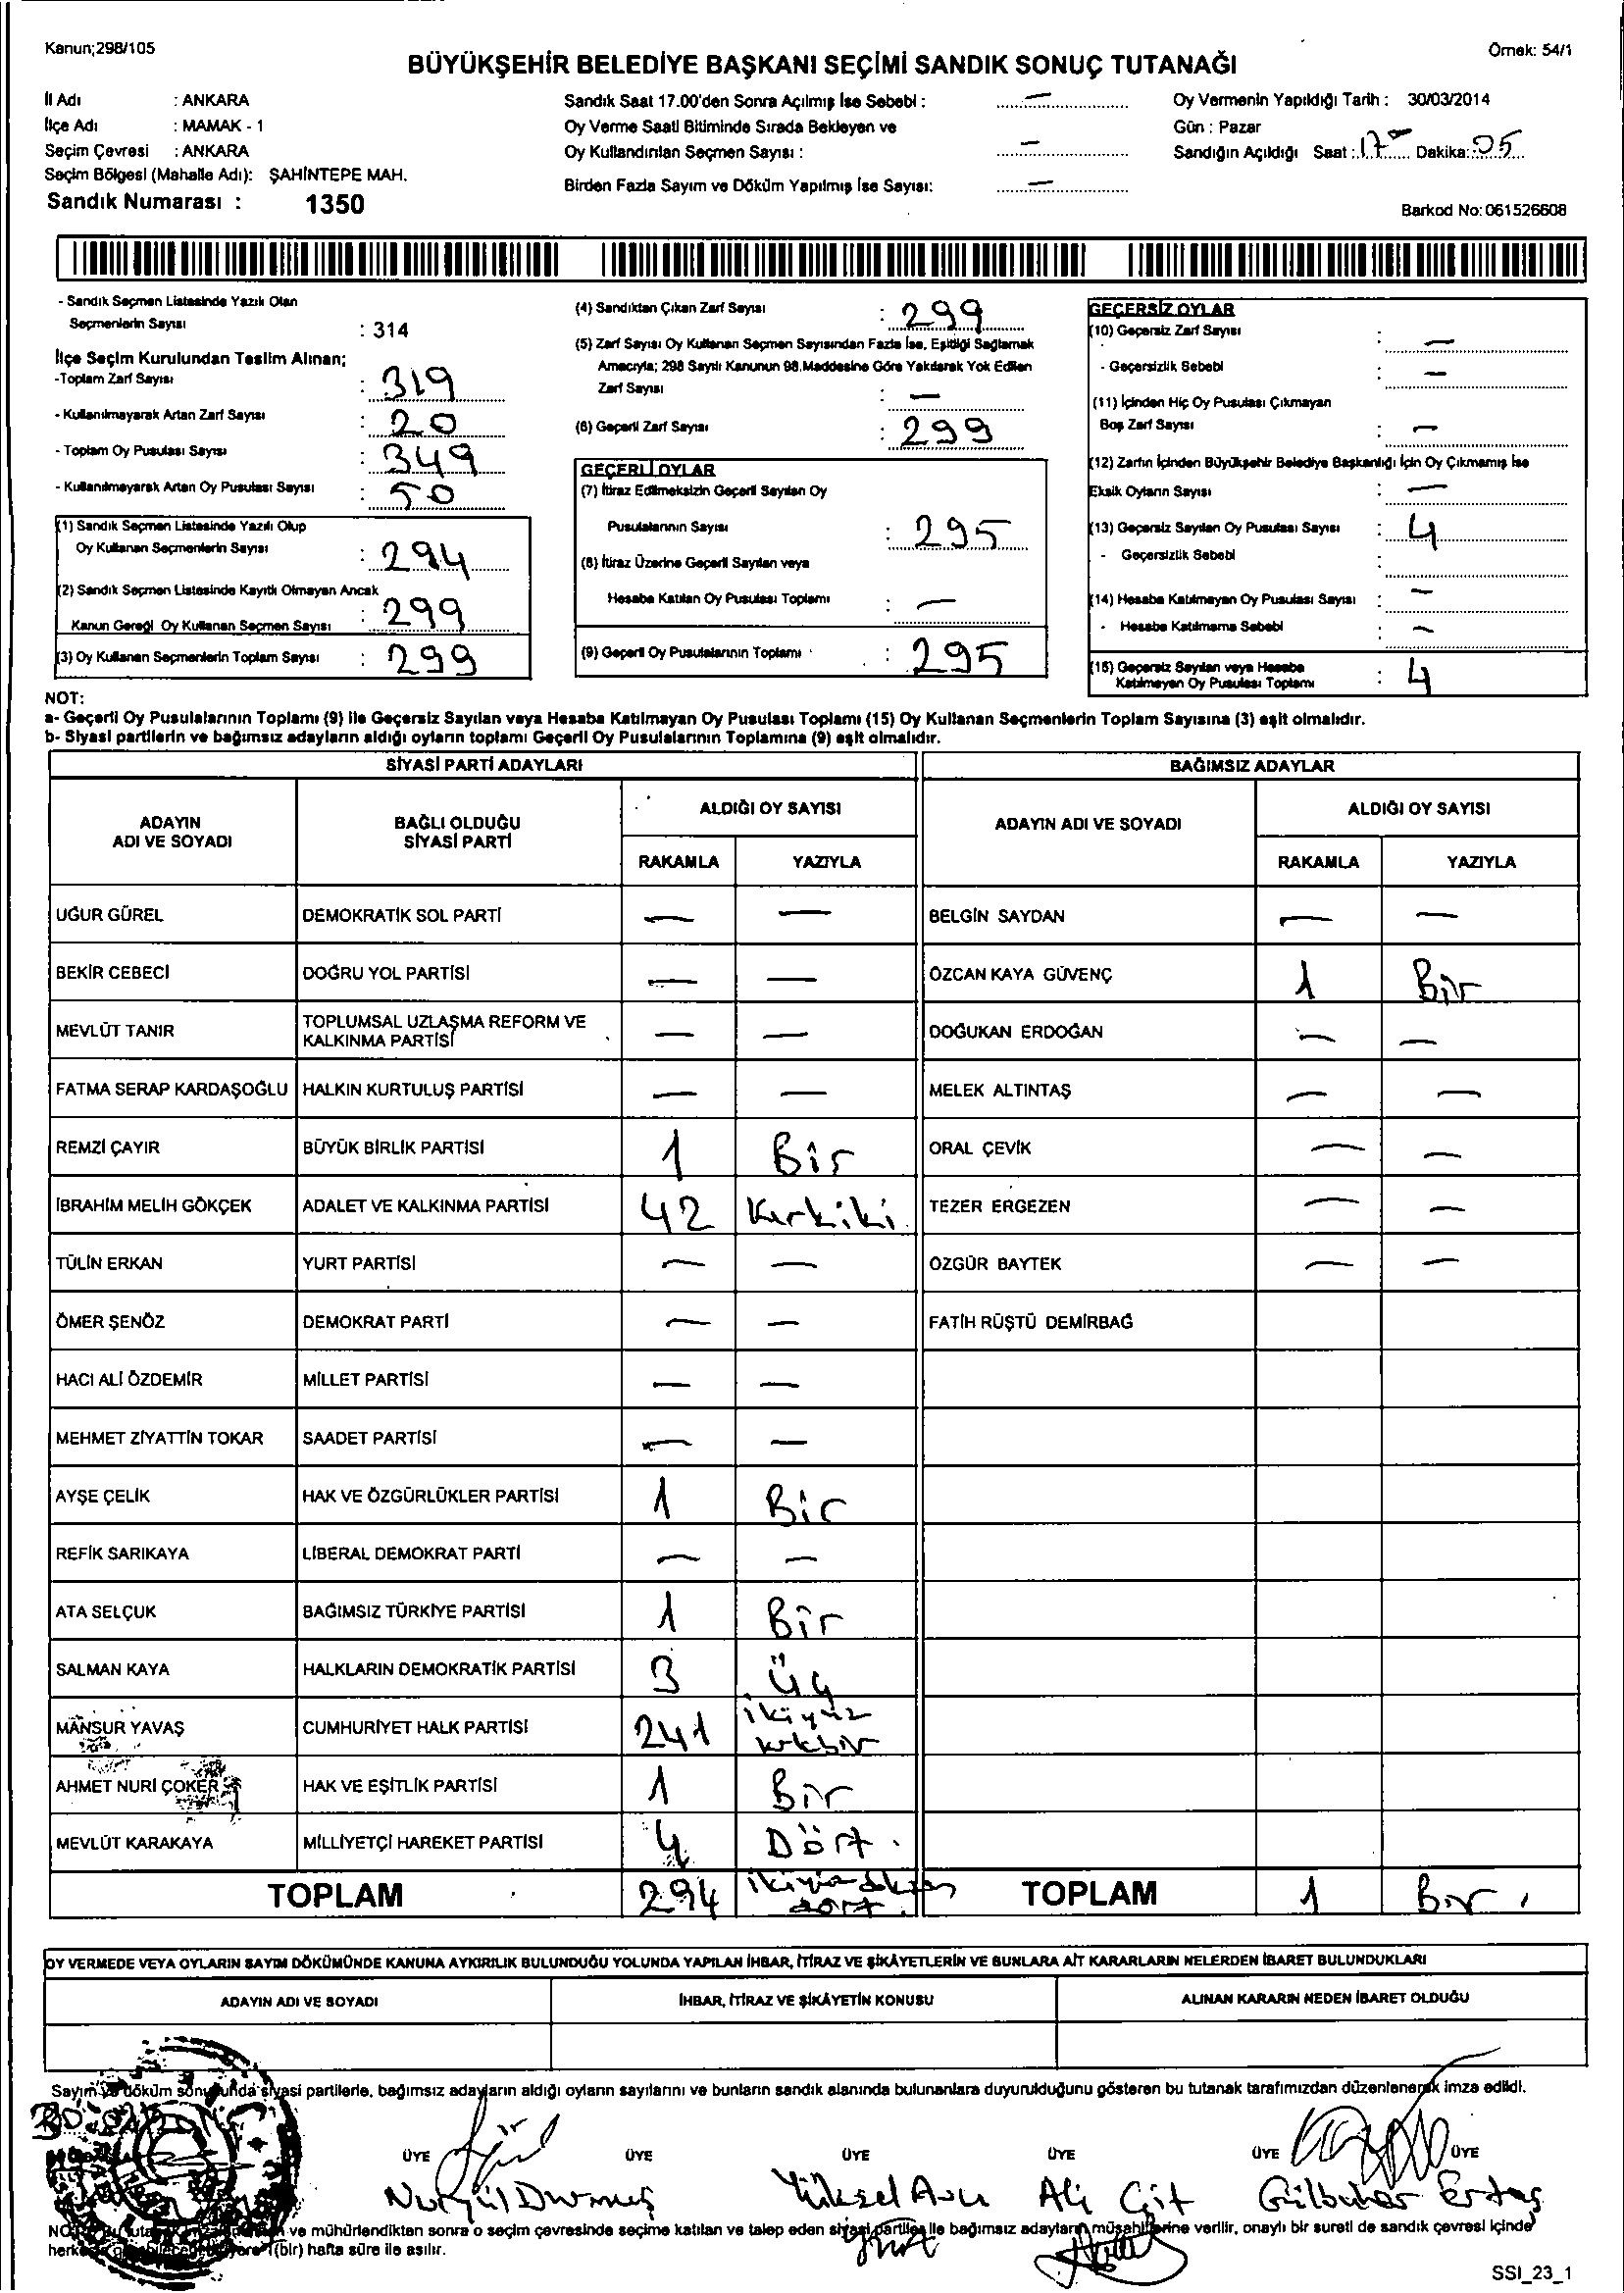 Kanun;298/105
Örnek: 54/1
BÜYÜKŞEHİR BELEDİYE BAŞKANI SEÇİMİ SANDIK SONUÇ TUTANAĞI
İl Adı : ANKARA
İlçe Adı : MAMAK - 1
Seçim Çevresi : ANKARA
Seçim Bölgesi (Mahalle Adı): ŞAHİNTEPE MAH.
Sandık Numarası : 1350
Sandık Saat 17.00'den Sonra Açılmış İse Sebebi : —
Oy Verme Saati Bitiminde Sırada Bekleyen ve
Oy Kullandırılan Seçmen Sayısı : —
Birden Fazla Sayım ve Döküm Yapılmış İse Sayısı: —
Oy Vermenin Yapıldığı Tarih : 30/03/2014
Gün : Pazar
Sandığın Açıldığı Saat : 17 Dakika: 05
Barkod No: 061526608
- Sandık Seçmen Listesinde Yazılı Olan
Seçmenlerin Sayısı : 314
İlçe Seçim Kurulundan Teslim Alınan;
-Toplam Zarf Sayısı : 319
- Kullanılmayarak Artan Zarf Sayısı : 20
- Toplam Oy Pusulası Sayısı : 349
- Kullanılmayarak Artan Oy Pusulası Sayısı : 50
(1) Sandık Seçmen Listesinde Yazılı Olup
Oy Kullanan Seçmenlerin Sayısı : 294
(2) Sandık Seçmen Listesinde Kayıtlı Olmayan Ancak
Kanun Gereği Oy Kullanan Seçmen Sayısı : 299
(3) Oy Kullanan Seçmenlerin Toplam Sayısı : 299
(4) Sandıktan Çıkan Zarf Sayısı : 299
(5) Zarf Sayısı Oy Kullanan Seçmen Sayısından Fazla İse, Eşitliği Sağlamak
Amacıyla; 298 Sayılı Kanunun 98.Maddesine Göre Yakılarak Yok Edilen
Zarf Sayısı : —
(6) Geçerli Zarf Sayısı : 299
GEÇERLİ OYLAR
(7) İtiraz Edilmeksizin Geçerli Sayılan Oy
Pusulalarının Sayısı : 295
(8) İtiraz Üzerine Geçerli Sayılan veya
Hesaba Katılan Oy Pusulası Toplamı : —
(9) Geçerli Oy Pusulalarının Toplamı : 295
GEÇERSİZ OYLAR
(10) Geçersiz Zarf Sayısı : —
- Geçersizlik Sebebi : —
(11) İçinden Hiç Oy Pusulası Çıkmayan
Boş Zarf Sayısı : —
(12) Zarfın İçinden Büyükşehir Belediye Başkanlığı İçin Oy Çıkmamış İse
Eksik Oyların Sayısı : —
(13) Geçersiz Sayılan Oy Pusulası Sayısı : 4
- Geçersizlik Sebebi :
(14) Hesaba Katılmayan Oy Pusulası Sayısı : —
- Hesaba Katılmama Sebebi : —
(15) Geçersiz Sayılan veya Hesaba
Katılmayan Oy Pusulası Toplamı : 4
NOT:
a- Geçerli Oy Pusulalarının Toplamı (9) ile Geçersiz Sayılan veya Hesaba Katılmayan Oy Pusulası Toplamı (15) Oy Kullanan Seçmenlerin Toplam Sayısına (3) eşit olmalıdır.
b- Siyasi partilerin ve bağımsız adayların aldığı oyların toplamı Geçerli Oy Pusulalarının Toplamına (9) eşit olmalıdır.
SİYASİ PARTİ ADAYLARI BAĞIMSIZ ADAYLAR
ADAYIN ADI VE SOYADI BAĞLI OLDUĞU SİYASİ PARTİ ALDIĞI OY SAYISI ADAYIN ADI VE SOYADI ALDIĞI OY SAYISI
RAKAMLA YAZIYLA RAKAMLA YAZIYLA
UĞUR GÜREL DEMOKRATİK SOL PARTİ — — BELGİN SAYDAN — —
BEKİR CEBECİ DOĞRU YOL PARTİSİ — — ÖZCAN KAYA GÜVENÇ 1 Bir
MEVLÜT TANIR TOPLUMSAL UZLAŞMA REFORM VE KALKINMA PARTİSİ — — DOĞUKAN ERDOĞAN — —
FATMA SERAP KARDAŞOĞLU HALKIN KURTULUŞ PARTİSİ — — MELEK ALTINTAŞ — —
REMZİ ÇAYIR BÜYÜK BİRLİK PARTİSİ 1 Bir ORAL ÇEVİK — —
İBRAHİM MELİH GÖKÇEK ADALET VE KALKINMA PARTİSİ 42 Kırkiki TEZER ERGEZEN — —
TÜLİN ERKAN YURT PARTİSİ — — ÖZGÜR BAYTEK — —
ÖMER ŞENÖZ DEMOKRAT PARTİ — — FATİH RÜŞTÜ DEMİRBAĞ
HACI ALİ ÖZDEMİR MİLLET PARTİSİ — —
MEHMET ZİYATTİN TOKAR SAADET PARTİSİ — —
AYŞE ÇELİK HAK VE ÖZGÜRLÜKLER PARTİSİ 1 Bir
REFİK SARIKAYA LİBERAL DEMOKRAT PARTİ — —
ATA SELÇUK BAĞIMSIZ TÜRKİYE PARTİSİ 1 Bir
SALMAN KAYA HALKLARIN DEMOKRATİK PARTİSİ 3 Üç
MANSUR YAVAŞ CUMHURİYET HALK PARTİSİ 241 ikiyüz kırkbir
AHMET NURİ ÇOKER HAK VE EŞİTLİK PARTİSİ 1 Bir
MEVLÜT KARAKAYA MİLLİYETÇİ HAREKET PARTİSİ 4 Dört
TOPLAM 294 ikiyüz doksan dört TOPLAM 1 Bir
OY VERMEDE VEYA OYLARIN SAYIM DÖKÜMÜNDE KANUNA AYKIRILIK BULUNDUĞU YOLUNDA YAPILAN İHBAR, İTİRAZ VE ŞİKÂYETLERİN VE BUNLARA AİT KARARLARIN NELERDEN İBARET BULUNDUKLARI
ADAYIN ADI VE SOYADI İHBAR, İTİRAZ VE ŞİKÂYETİN KONUSU ALINAN KARARIN NEDEN İBARET OLDUĞU
Sayım ve döküm sonucunda siyasi partilerle, bağımsız adayların aldığı oyların sayılarını ve bunların sandık alanında bulunanlara duyurulduğunu gösteren bu tutanak tarafımızdan düzenlenerek imza edildi.
ÜYE ÜYE ÜYE ÜYE ÜYE ÜYE
Nurgül Durmuş Yüksel Avcı Ali Çit Gülbahar Ertaş
ve mühürlendikten sonra o seçim çevresinde seçime katılan ve talep eden siyasi partiler ile bağımsız adayların müşahitlerine verilir, onaylı bir sureti de sandık çevresi içinde
1(bir) hafta süre ile asılır.
SSI_23_1